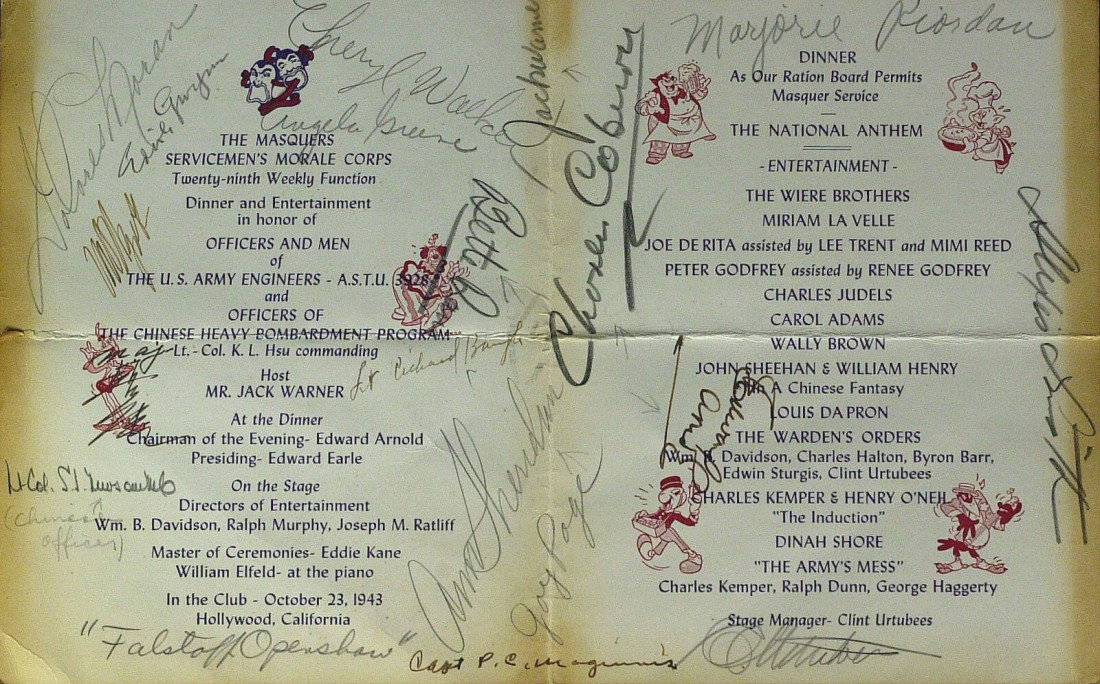 THE MASQUERS
SERVICEMEN'S MORALE CORPS
Twenty-ninth Weekly Function
Dinner and Entertainment
in honor of
OFFICERS AND MEN
of
THE U.S. ARMY ENGINEERS - A.S.T.U. 3928
and
OFFICERS OF
THE CHINESE HEAVY BOMBARDMENT PROGRAM
Lt. - Col. K. L. Hsu commanding
Host
MR. JACK WARNER
At the Dinner
Chairman of the Evening- Edward Arnold
Presiding- Edward Earle
On the Stage
Directors of Entertainment
Wm. B. Davidson, Ralph Murphy, Joseph M. Ratliff
Master of Ceremonies- Eddie Kane
William Elfeld- at the piano
In the Club - October 23, 1943
Hollywood, California
Dolores Moran
Cheryl Walker
Angela Greene
Lt Richard
Maj
Lt Col. S.
(Chinese
officer)
"Falstaff Openshaw"
Capt P. C. Maginnis
Ann Sheridan
Joy Page
Charles Coburn
Marjorie Riordan
DINNER
As Our Ration Board Permits
Masquer Service
THE NATIONAL ANTHEM
- ENTERTAINMENT -
THE WIERE BROTHERS
MIRIAM LA VELLE
JOE DE RITA assisted by LEE TRENT and MIMI REED
PETER GODFREY assisted by RENEE GODFREY
CHARLES JUDELS
CAROL ADAMS
WALLY BROWN
JOHN SHEEHAN & WILLIAM HENRY
In A Chinese Fantasy
LOUIS DA PRON
THE WARDEN'S ORDERS
Wm. B. Davidson, Charles Halton, Byron Barr,
Edwin Sturgis, Clint Urtubees
CHARLES KEMPER & HENRY O'NEIL
"The Induction"
DINAH SHORE
"THE ARMY'S MESS"
Charles Kemper, Ralph Dunn, George Haggerty
Stage Manager- Clint Urtubees
Edward Arnold
Alexis Smith